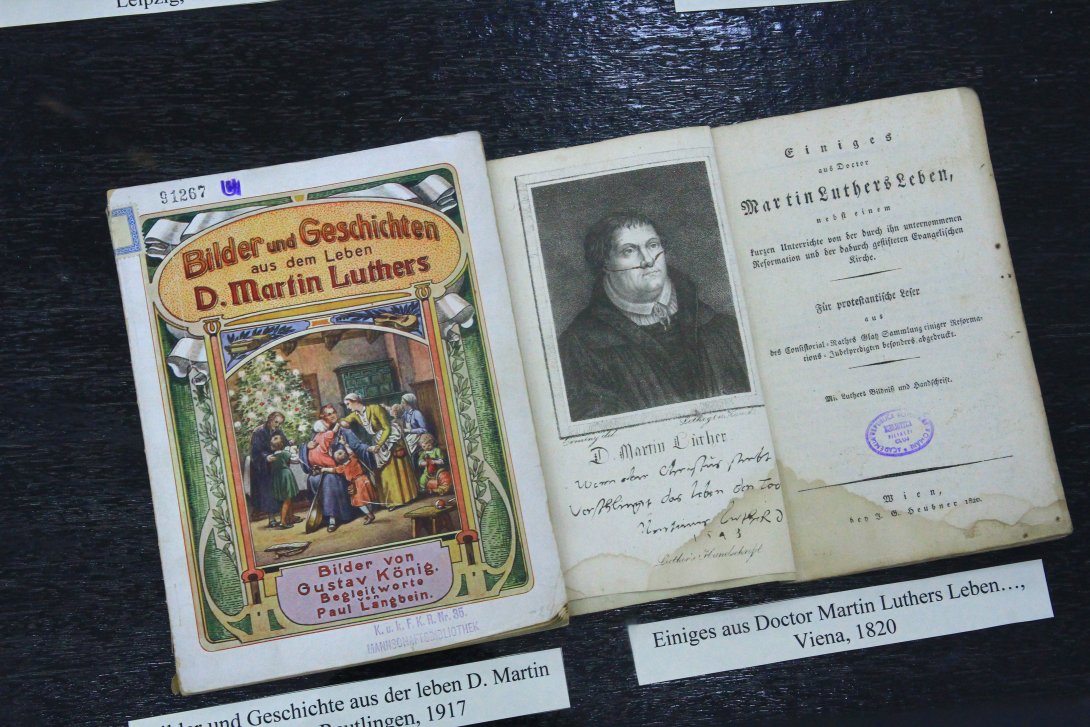 Leipzig,
91267
Bilder und Geschichten
aus dem Leben
D. Martin Luthers
Bilder von
Gustav König.
Begleitworte
von
Paul Langbein.
K. u. k. F. K. R. Nr. 36.
MANNSCHAFTSBIBLIOTHEK
D. Martin Luther
Luther's Handschrift
Einiges
aus Doctor
Martin Luthers Leben,
nebst einem
kurzen Unterrichte von der durch ihn unternommenen
Reformation und der dadurch gestifteten Evangelischen
Kirche.
Für protestantische Leser
aus
des Consistorial-Rathes Glatz Sammlung einiger Reforma-
tions-Jubelpredigten besonders abgedruckt.
Mit Luthers Bildniß und Handschrift.
Wien,
bey J. G. Heubner 1820.
Bilder und Geschichte aus der leben D. Martin
Reutlingen, 1917
Einiges aus Doctor Martin Luthers Leben...,
Viena, 1820